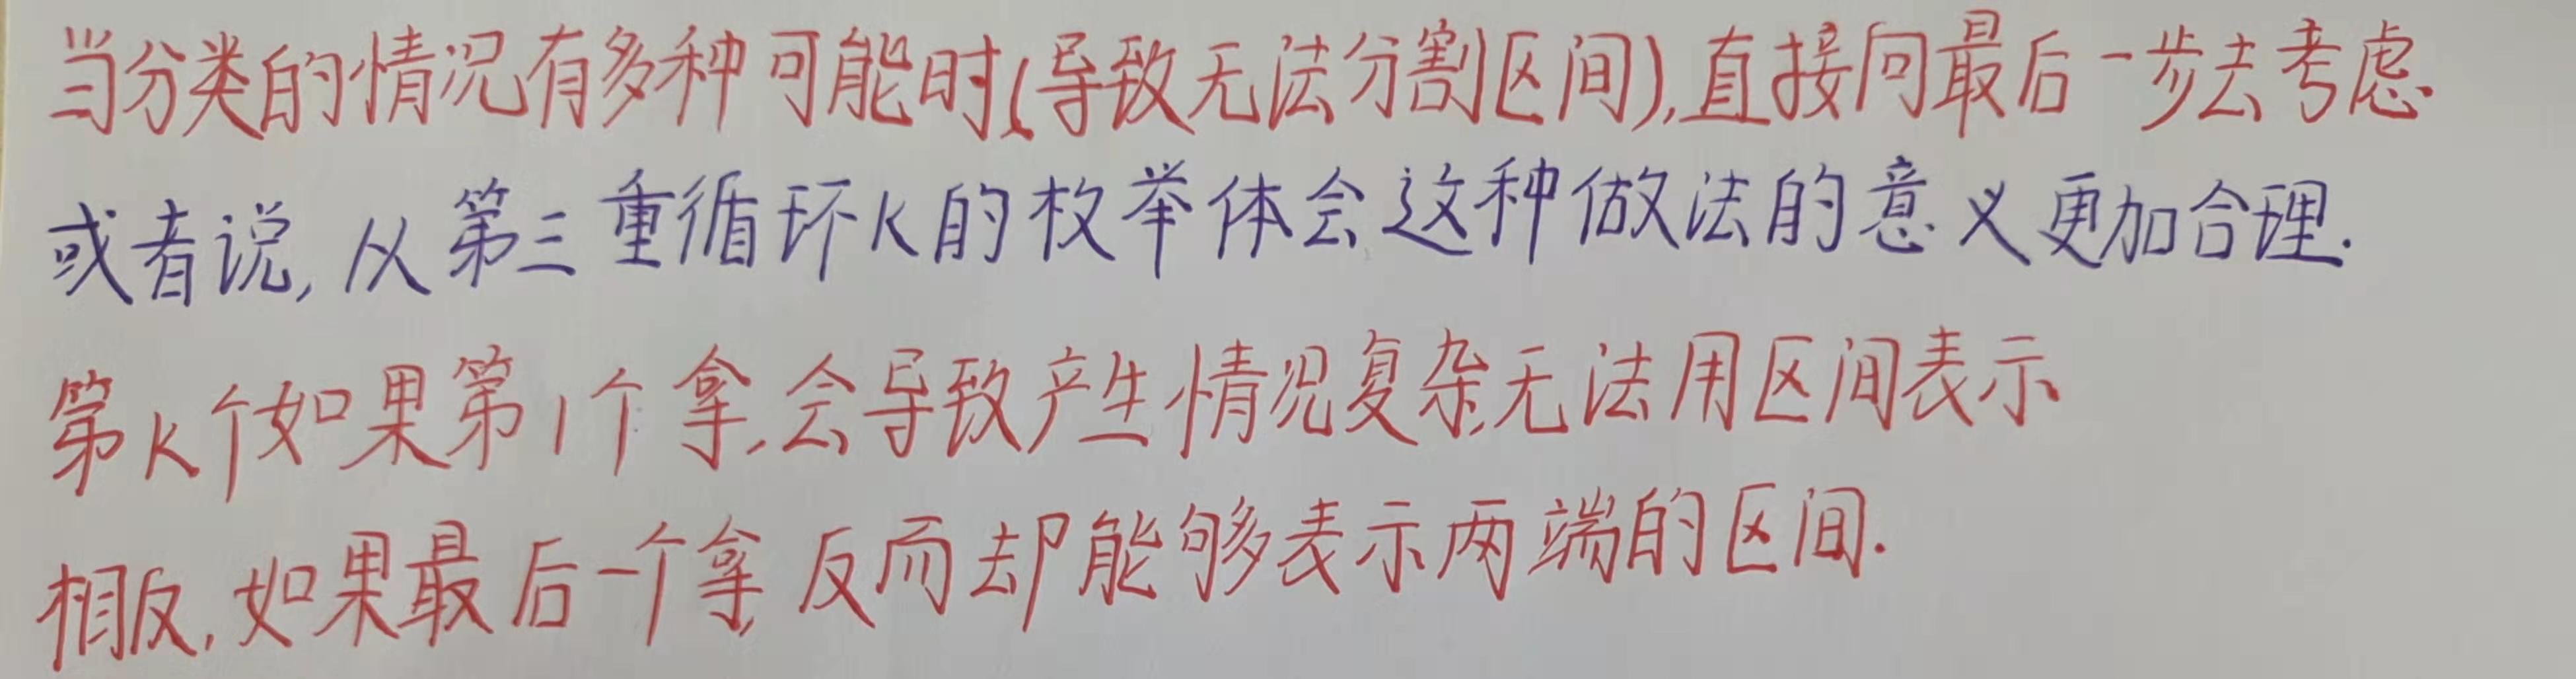 当分类的情况有多种可能时(导致无法分割区间),直接向最后一步去考虑.
或者说,从第三重循环K的枚举体会这种做法的意义更加合理.
第K个如果第1个拿,会导致产生情况复杂,无法用区间表示
相反,如果最后一个拿,反而却能够表示两端的区间.